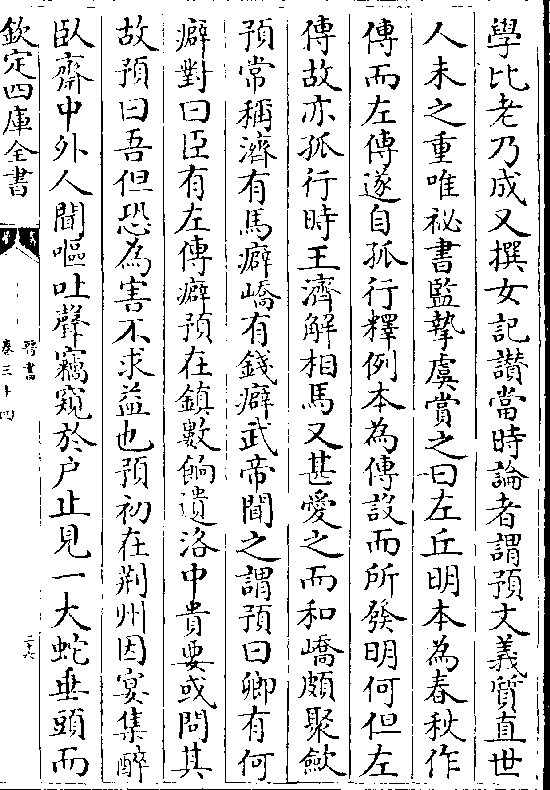 學比老乃成又撰女記讃當時論者謂預文義質直世
人未之重唯祕書監摯虞賞之曰左丘明本為春秋作
傳而左傳遂自孤行釋例本為傳設而所發明何但左
傳故亦孤行時王濟解相馬又甚愛之而和嶠頗聚斂
預常稱濟有馬癖嶠有錢癖武帝聞之謂預曰卿有何
癖對曰臣有左傳癖預在鎮數餉遺洛中貴要或問其
故預曰吾但恐為害不求益也預初在荆州因宴集醉
臥齋中外人聞嘔吐聲竊窺於户止見一大蛇垂頭而
欽定四庫全書
晉書
卷三十四
二十六